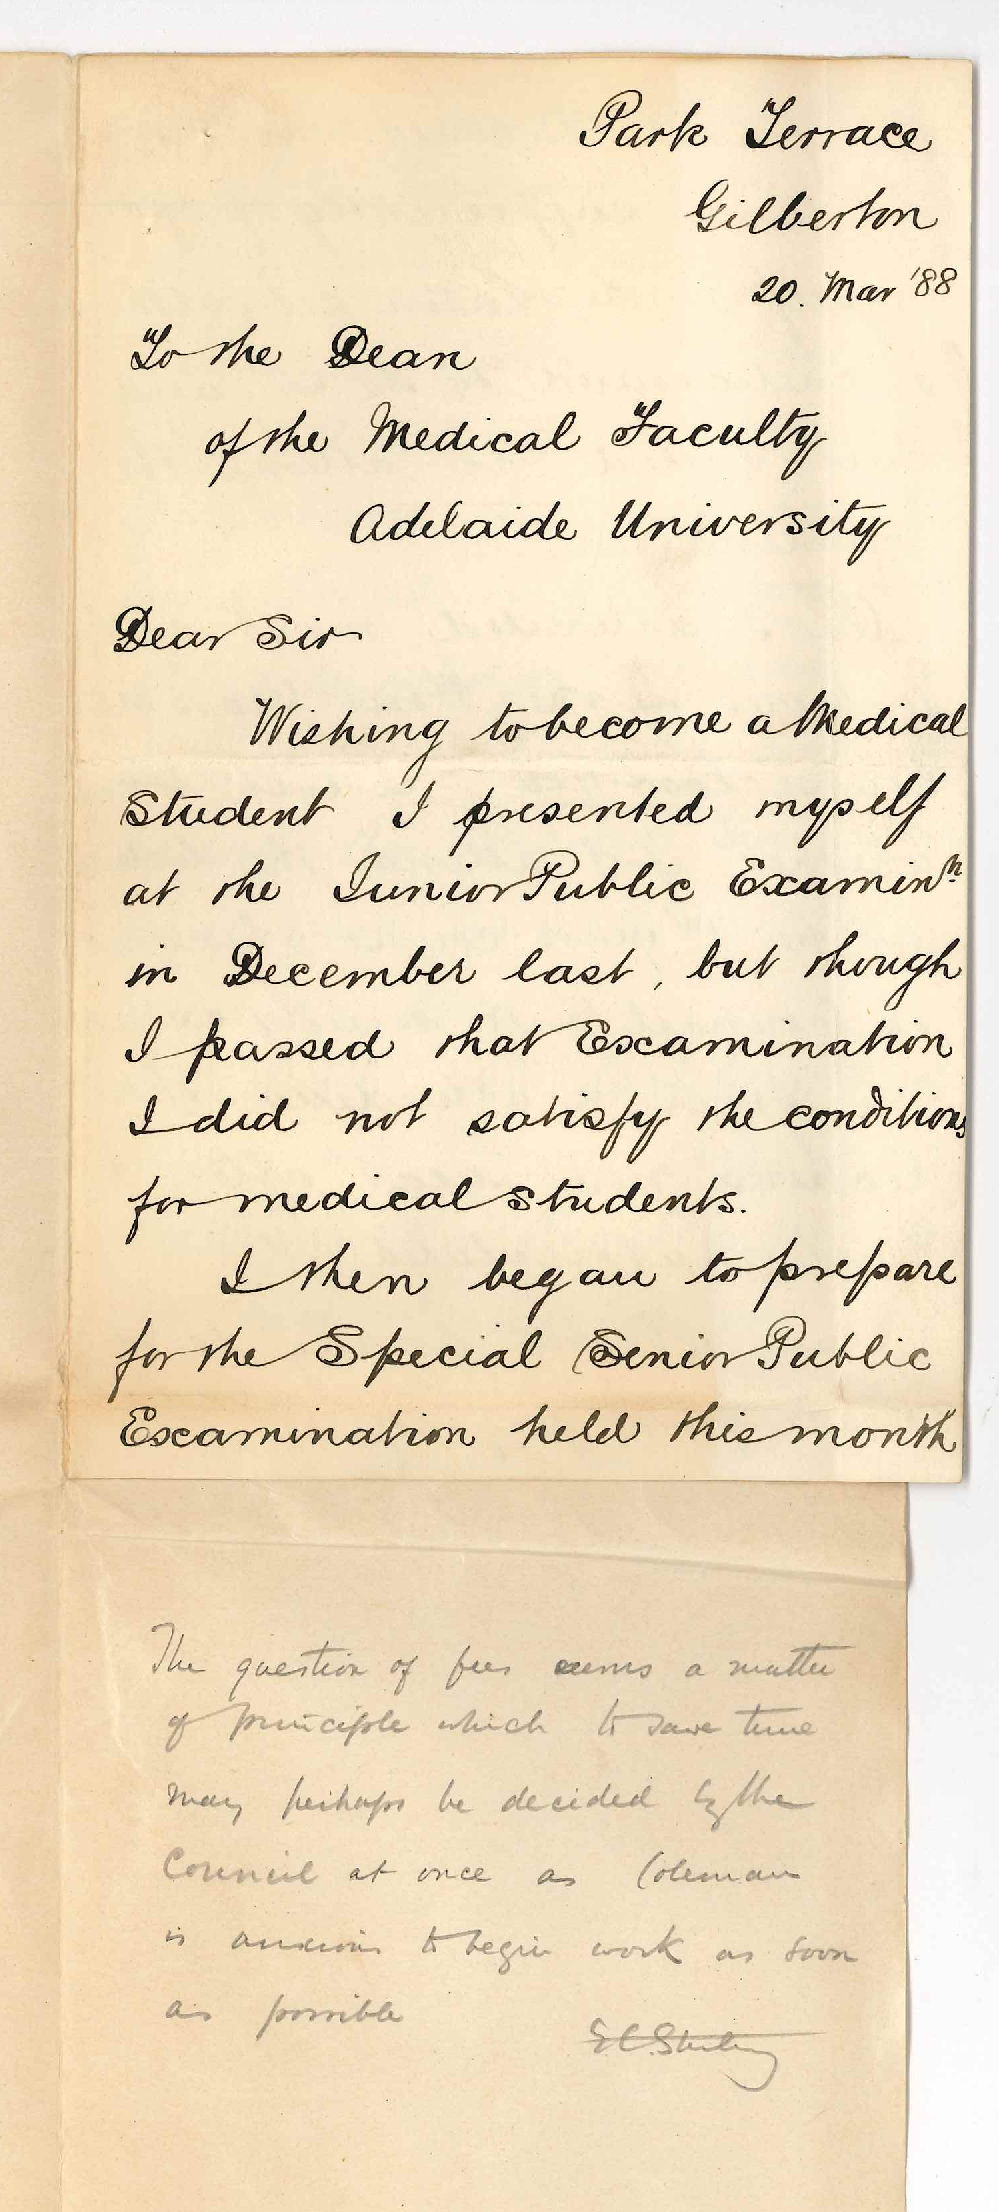 Park Terrace
Gilberton
20. Mar '88
To the Dean
of the Medical Faculty
Adelaide University
Dear Sir
Wishing to become a Medical
Student I presented myself
at the Junior Public Examinn.
in December last, but though
I passed that Examination
I did not satisfy the conditions
for medical students.
I then began to prepare
for the Special Senior Public
Examination held this month
The question of fees seems a matter
of principle which to save time
may perhaps be decided by the
Council at once as Coleman
is anxious to begin work as soon
as possible
E C Stirling